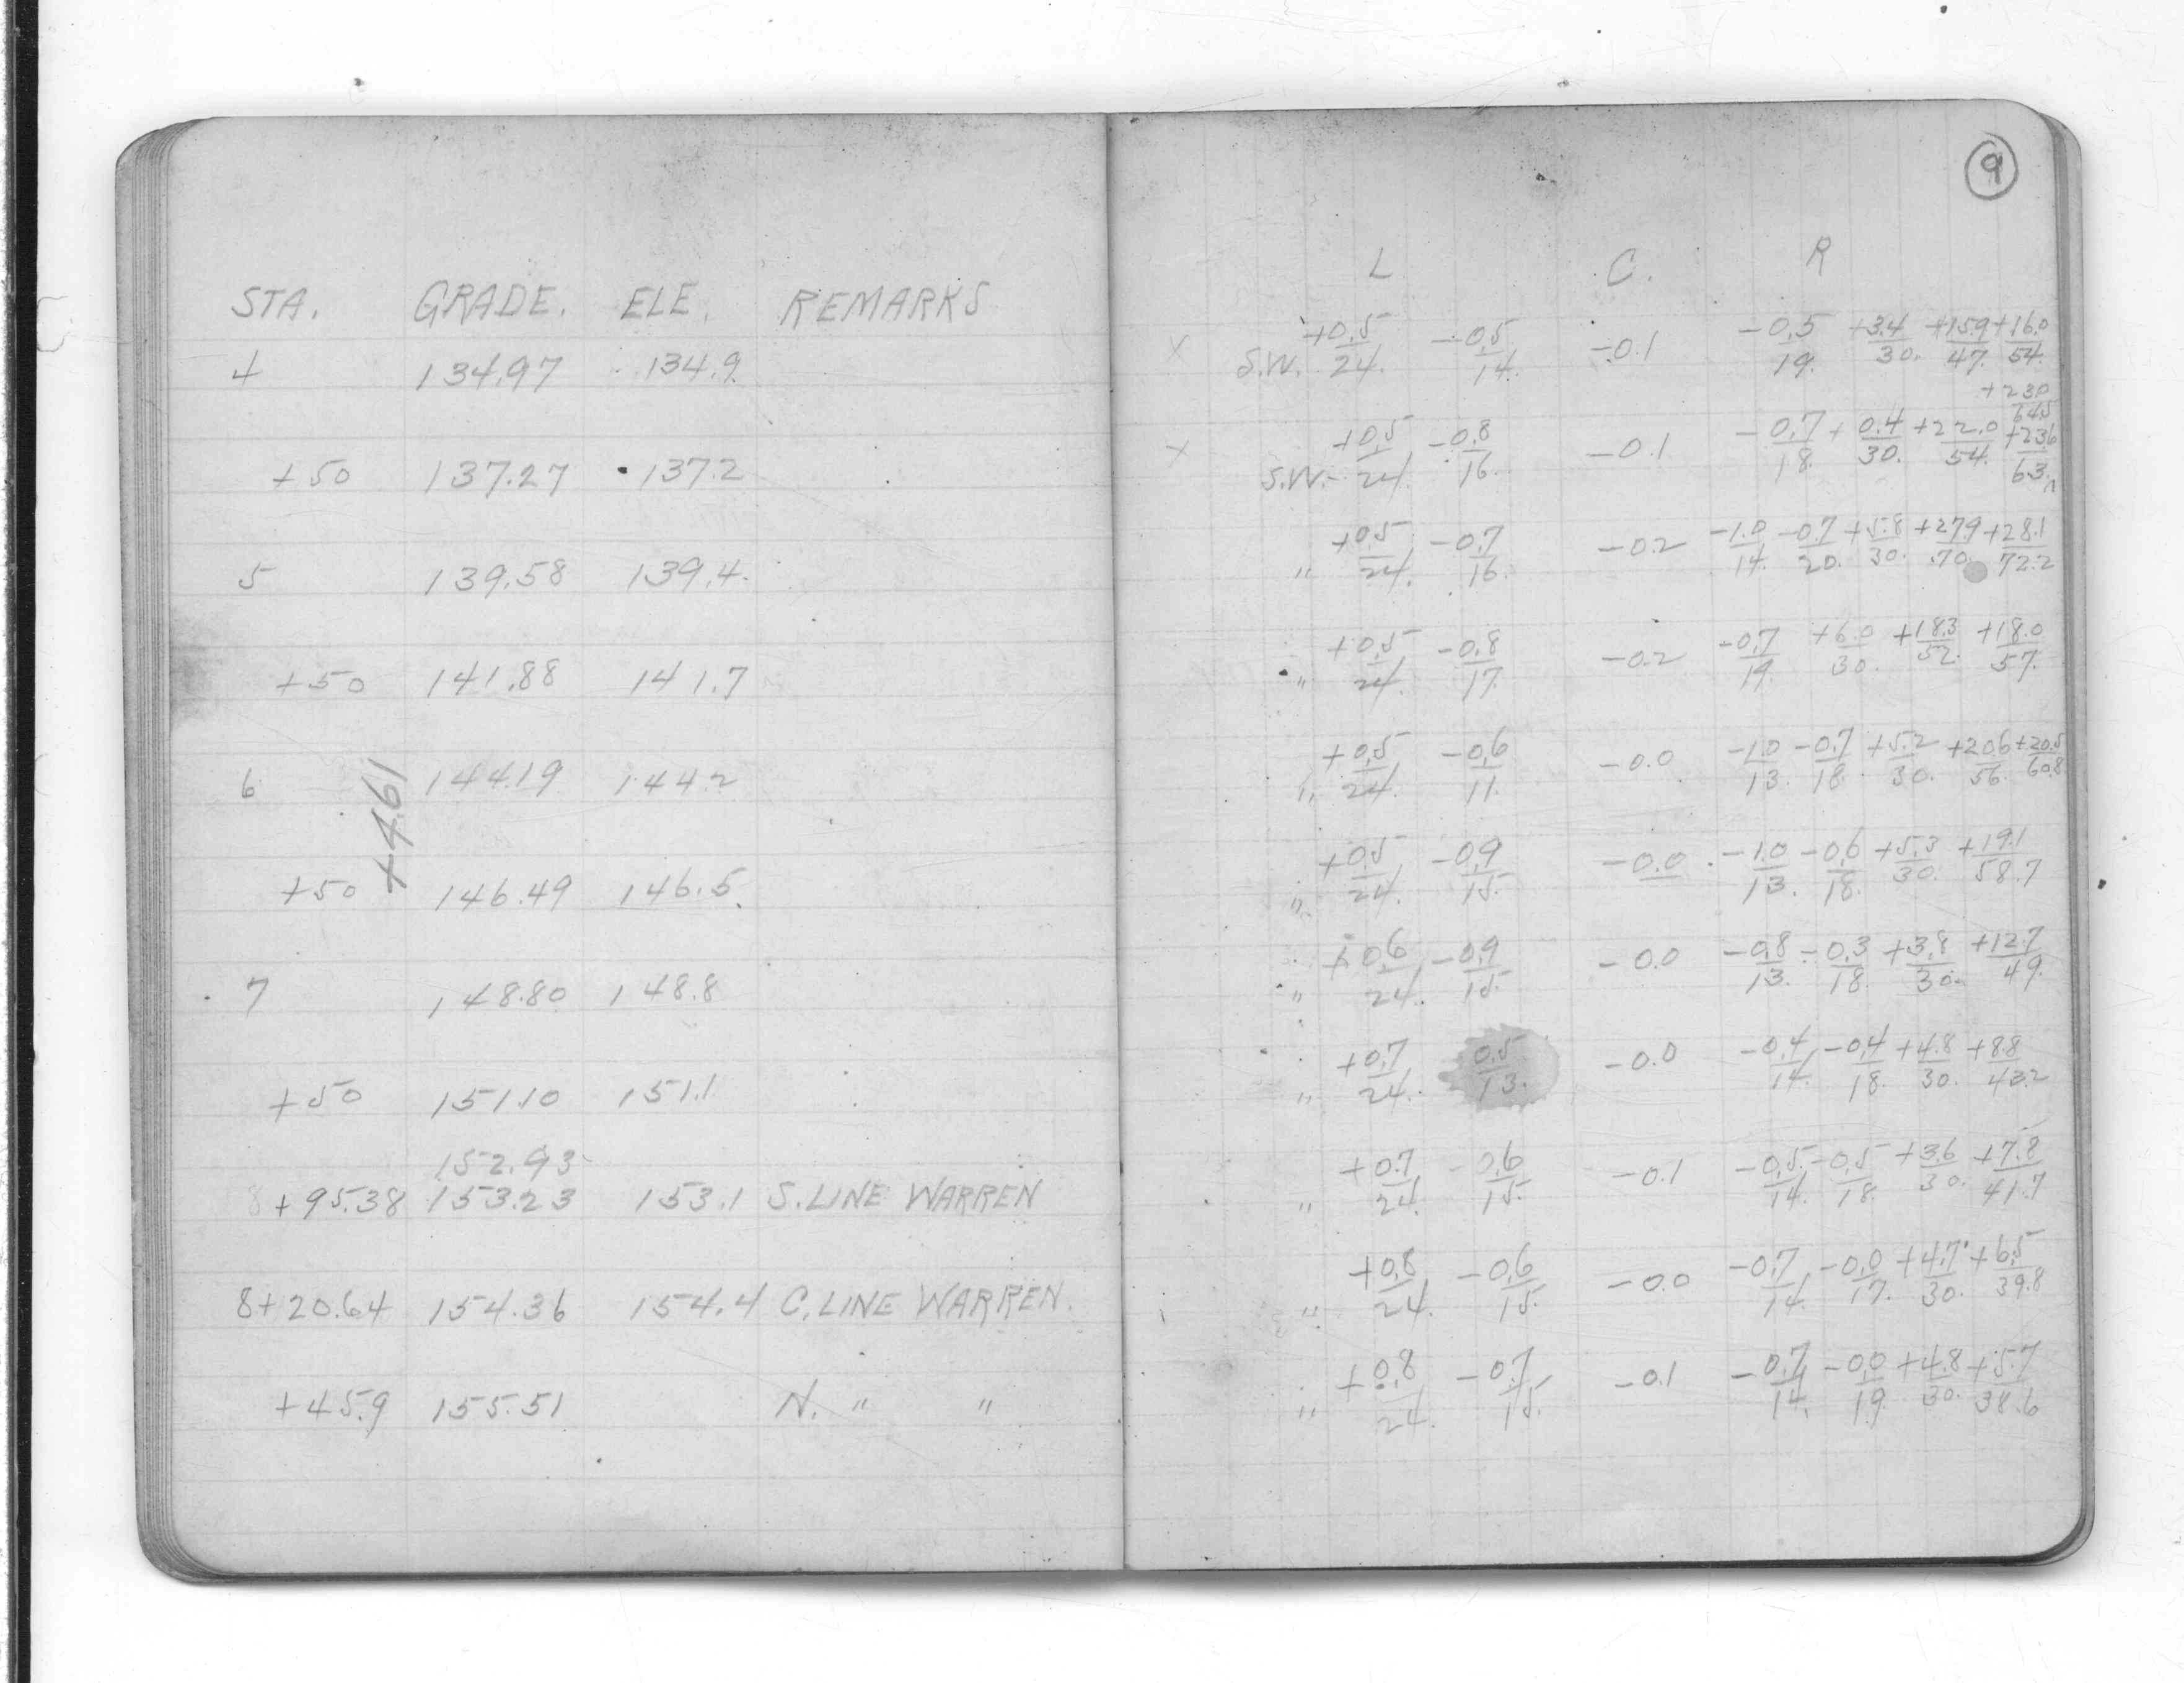 STA. GRADE. ELE. REMARKS
4 134.97 134.9
+50 137.27 137.2
5 139.58 139.4
+50 141.88 141.7
6 144.19 144.2
+4.61
+50 146.49 146.5
7 148.80 148.8
+50 151.10 151.1
152.93
+95.38 153.23 153.1 S. LINE WARREN
8+20.64 154.36 154.4 C. LINE WARREN.
+45.9 155.51 N. " "
9
L C. R
X S.W. +0.5/24. -0.5/14. -0.1 -0.5/19. +3.4/30. +15.9/47. +16.0/54.
+23.0/64.5
X S.W. +0.5/24. -0.8/16. -0.1 -0.7/18. +0.4/30. +22.0/54. +23.6/63.
" +0.5/24. -0.7/16. -0.2 -1.0/14. -0.7/20. +5.8/30. +27.9/70. +28.1/72.2
" +0.5/24. -0.8/17. -0.2 -0.7/19. +6.0/30. +18.3/52. +18.0/57.
" +0.5/24. -0.6/11. -0.0 -1.0/13. -0.7/18. +5.2/30. +20.6/56. +20.5/60.8
" +0.5/24. -0.9/15. -0.0 -1.0/13. -0.6/18. +5.3/30. +19.1/58.7
" +0.6/24. -0.9/15. -0.0 -0.8/13. -0.3/18. +3.8/30. +12.7/49.
" +0.7/24. 0.5/13. -0.0 -0.4/14. -0.4/18. +4.8/30. +8.8/43.2
" +0.7/24. -0.6/15. -0.1 -0.5/14. -0.5/18. +3.6/30. +7.8/41.7
" +0.8/24. -0.6/15. -0.0 -0.7/14. -0.0/17. +4.7/30. +6.5/39.8
" +0.8/24. -0.7/15. -0.1 -0.7/14. -0.0/19. +4.8/30. +5.7/38.6